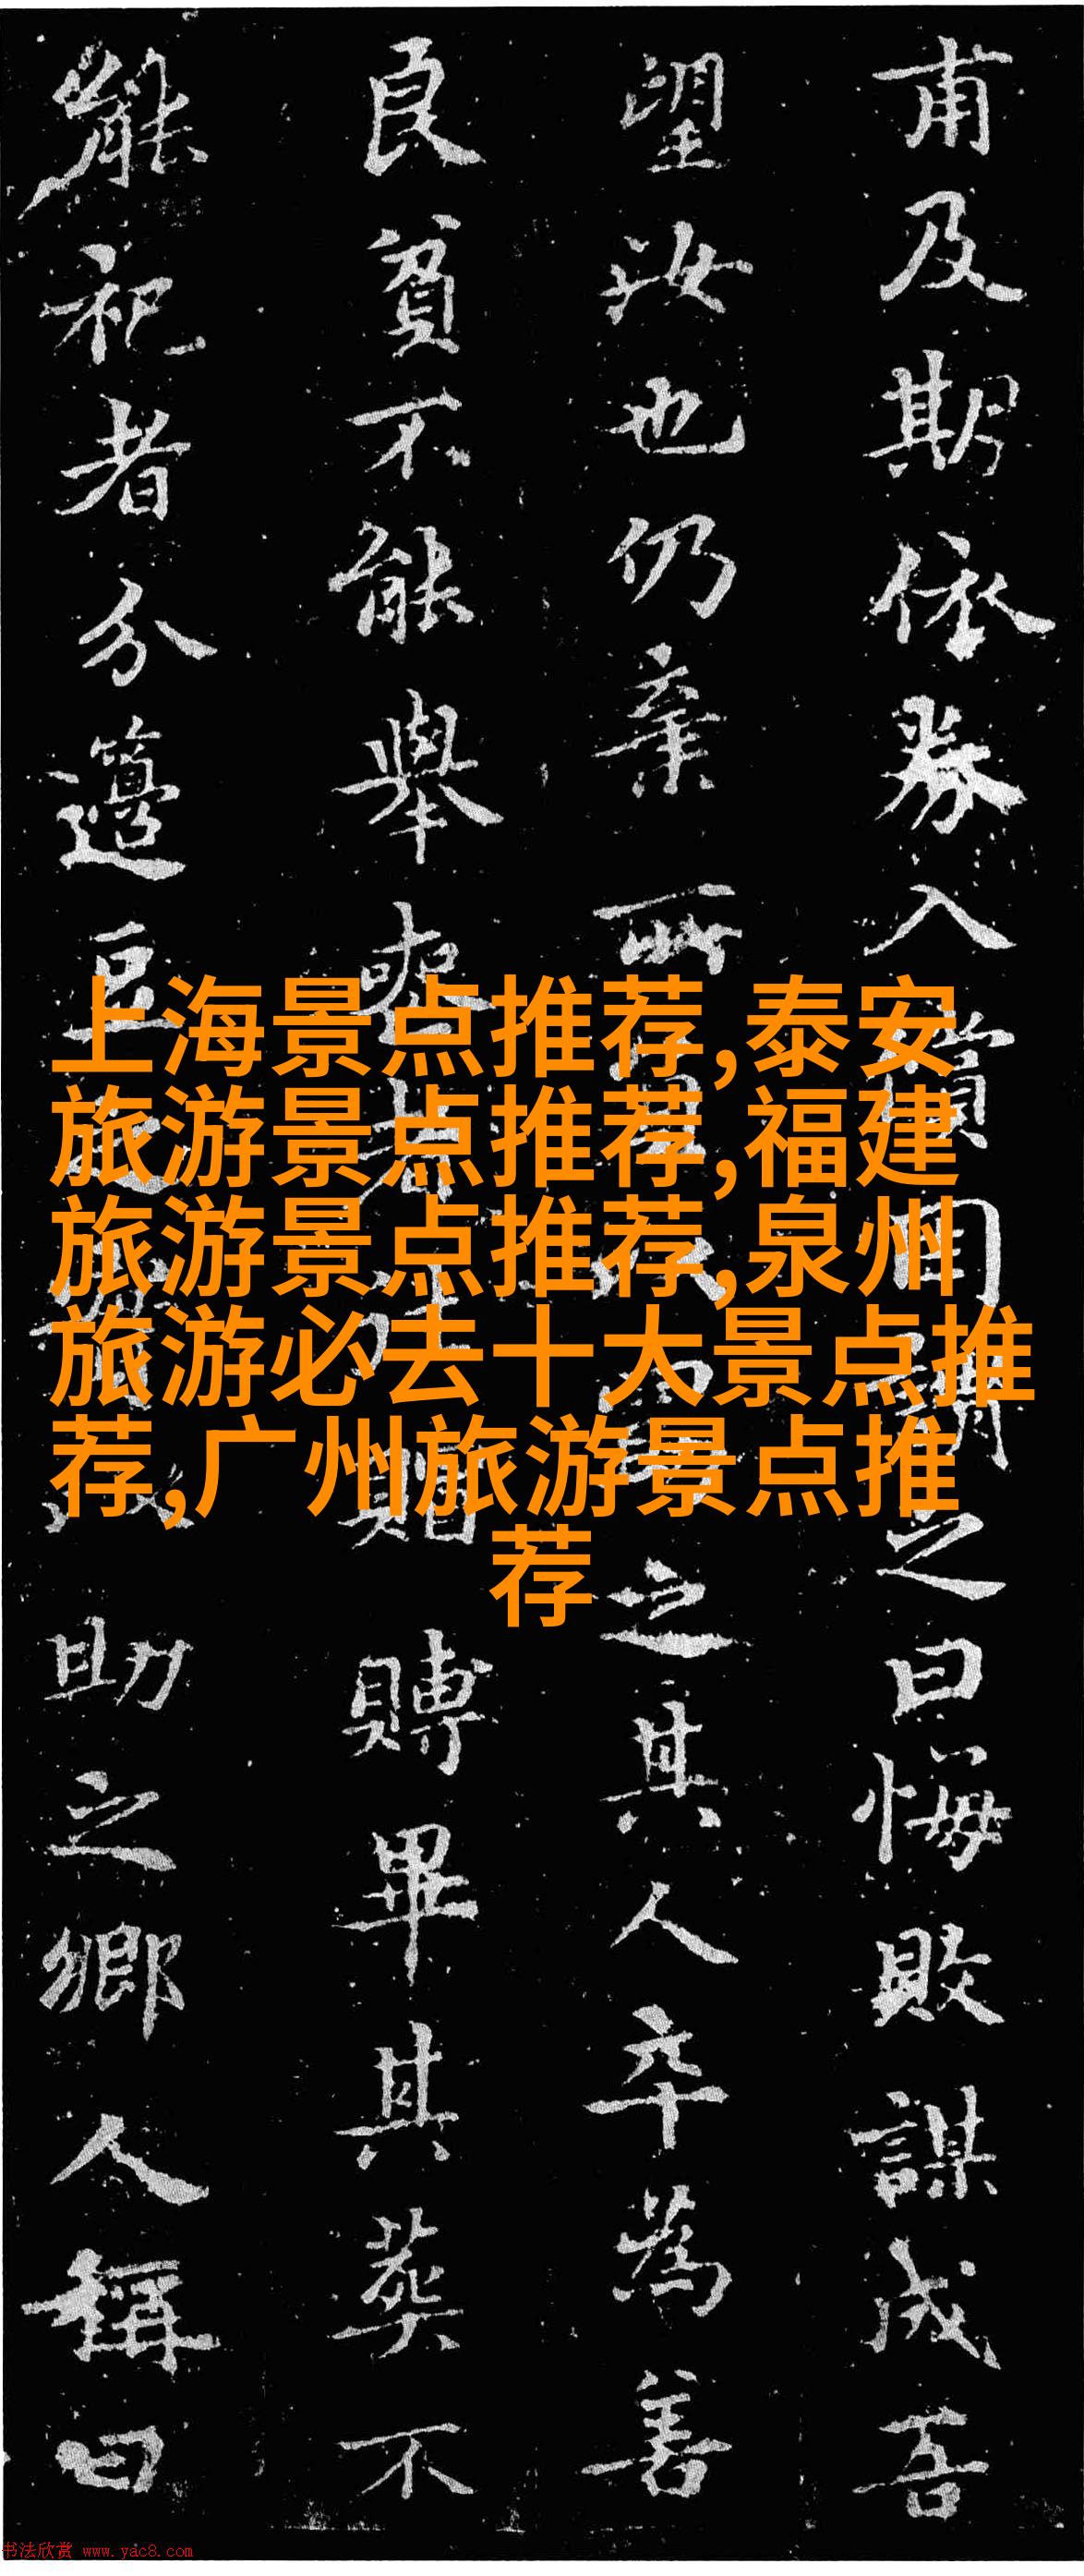 甫及期依券入 償 目 謂之曰悔敗謀成吾
望汝也仍棄所 之其人卒為善
良貧不能舉喪者 賵賻畢其葬不
能祀者分籩豆 助之鄉人稱曰
上海景点推荐,泰安
旅游景点推荐,福建
旅游景点推荐,泉州
旅游必去十大景点推
荐,广州旅游景点推
荐
书法欣赏 www.yac8.com